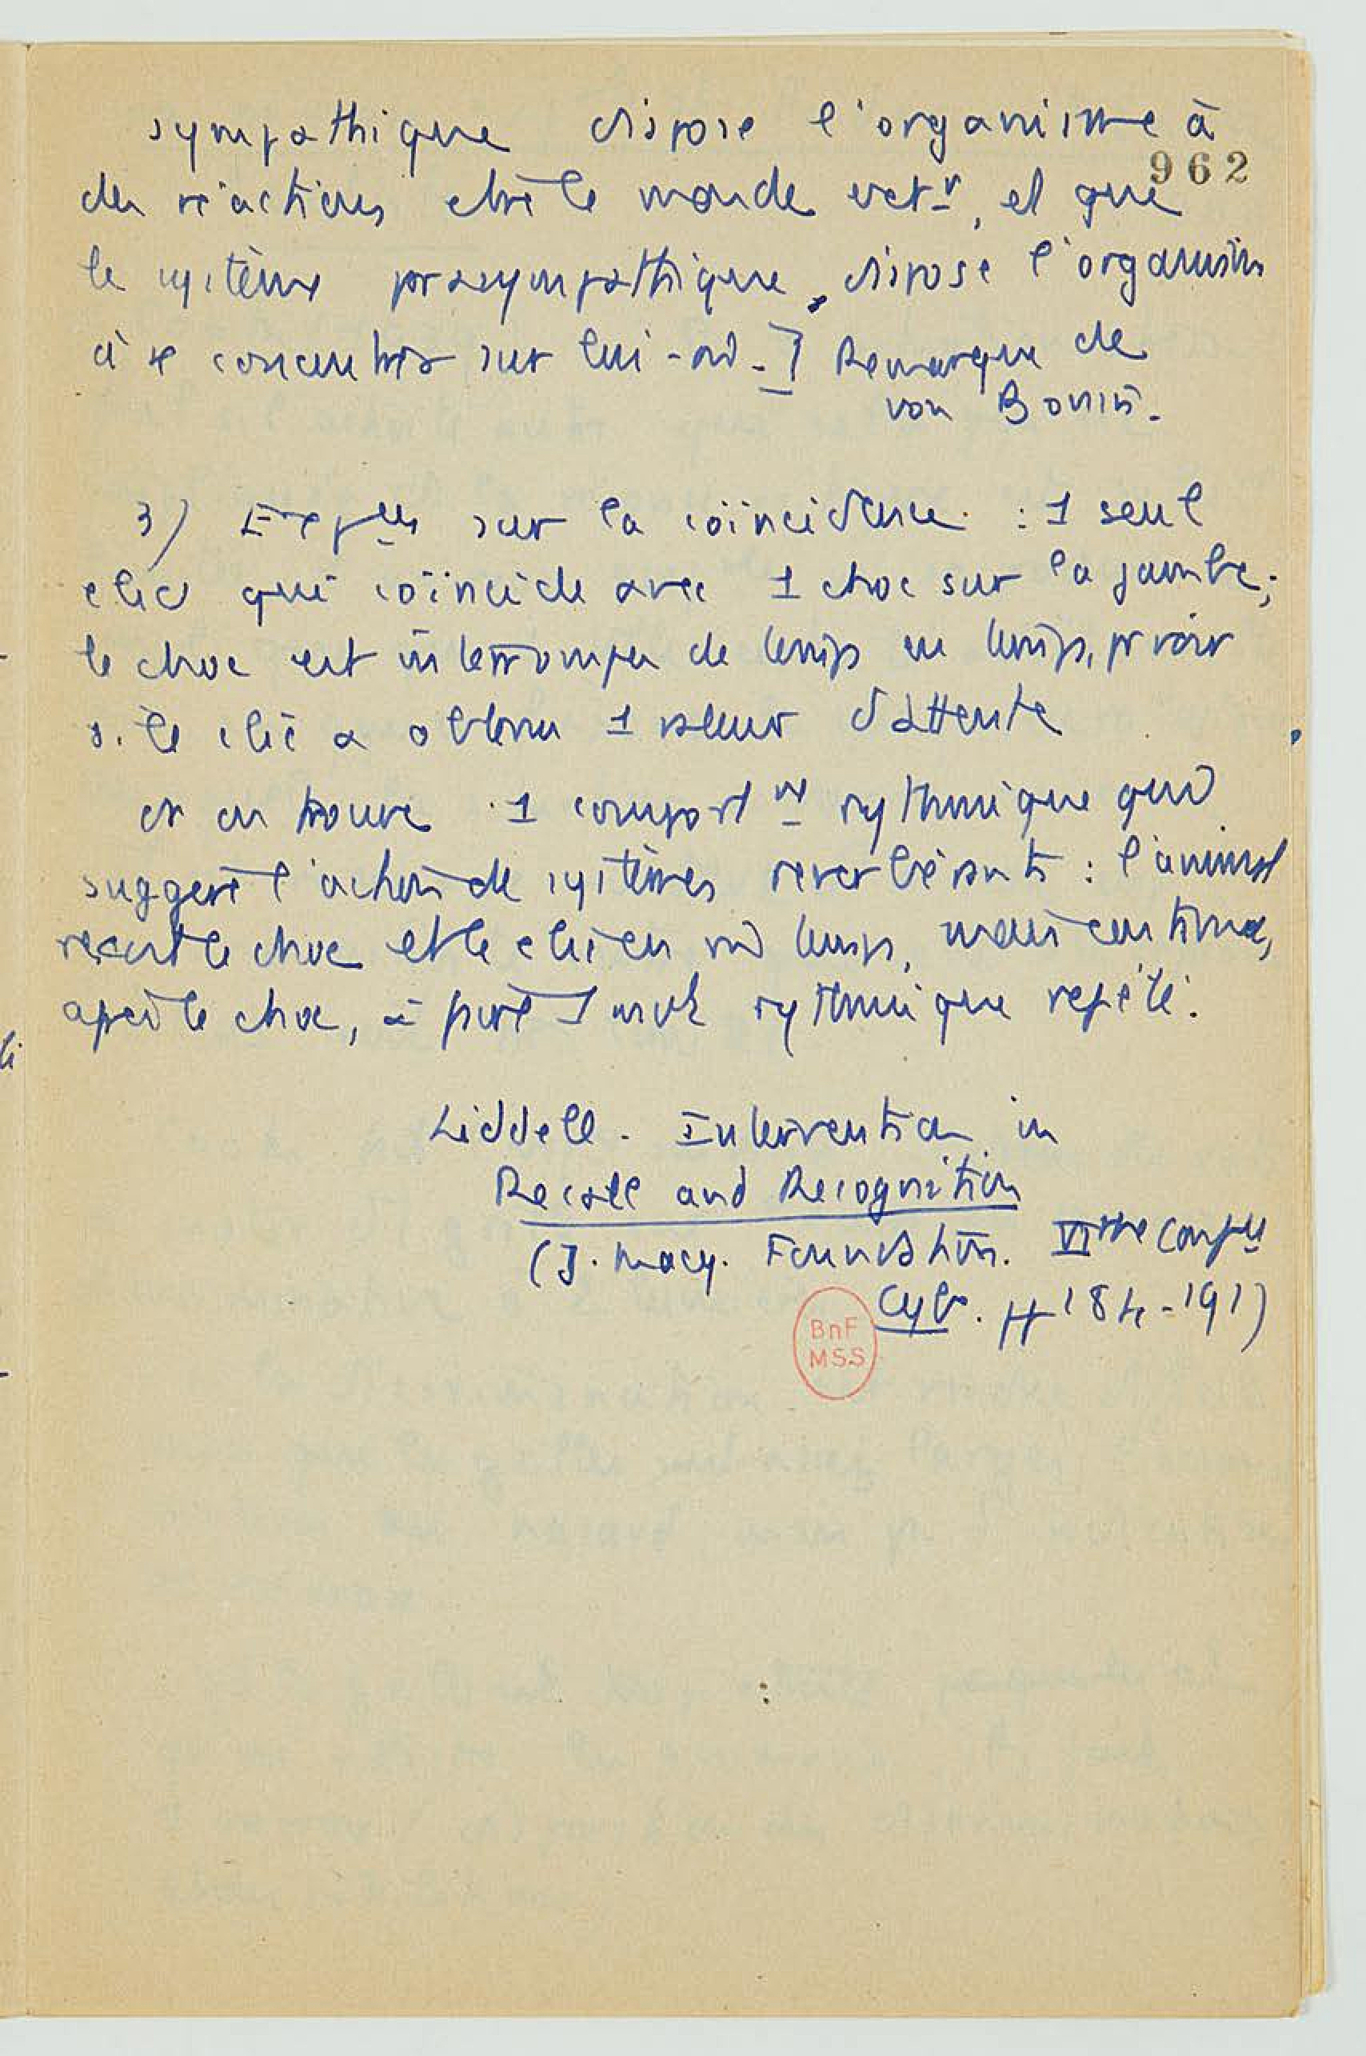 sympathique dispose l'organisme à
962
des réactions ctre le monde extr, et que
le système parasympathique, dispose l'organisme
à se concentrer sur lui-m̂.] Remarque de
von Bonin.
3) Expces sur la coïncidence : 1 seul
clic qui coïncide avec 1 choc sur la jambe;
le choc est interrompu de temps en temps, pr voir
si le clic a obtenu 1 valeur d'attente
or on trouve 1 comportnt rythmique qui
suggère l'action de systèmes reverbérants : l'animal
reçoit le choc et le clic en m̂ temps, mais continue,
après le choc, à 1 rythmique répété.
Liddell. Intervention in
Recall and Recognition
(J. Macy. Foundation. VIème Confce
Cyb. pp 184-191)
BnF
MSS